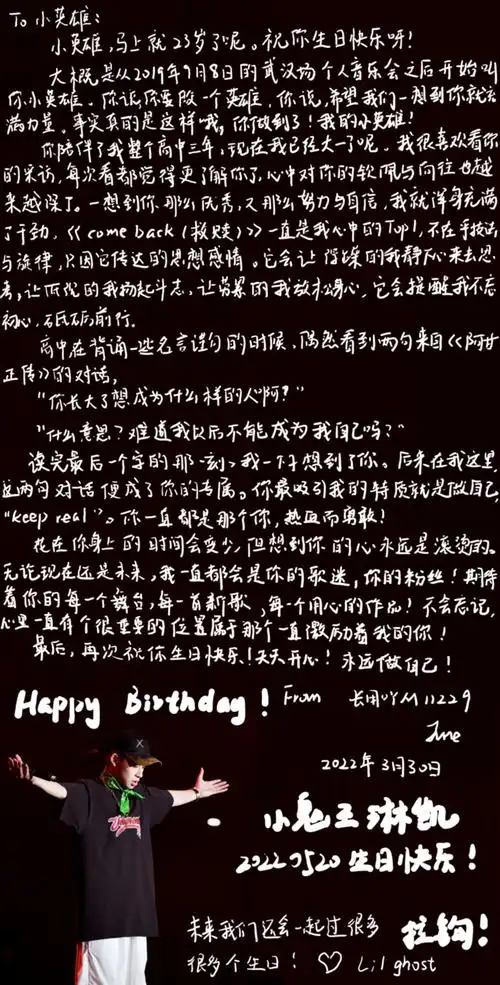 To 小英雄：
小英雄，马上就23岁了呢。祝你生日快乐呀！
大概是从2019年9月8日的武汉场个人音乐会之后开始叫
你小英雄。你说你要做一个英雄，你说，希望我们一想到你就充
满力量。事实真的是这样哦，你做到了！我的小英雄！
你陪伴了我整个高中三年，现在我已经大一了呢。我很喜欢看你
的采访，每次看都觉得更了解你了，心中对你的钦佩与向往也越
来越深了。一想到你那么优秀，又那么努力与自信，我就浑身充满
了干劲。《come back (救赎)》一直是我心中的Top1，不在于技法
与旋律，只因它传达的思想感情。它会让浮躁的我静下心来去思
考，让低沉的我扬起斗志，让背景的我放松身心，它会提醒我不忘
初心，砥砺前行。
高中在背诵一些名言谚句的时候，偶然看到两句来自《阿甘
正传》的对话，
“你长大了想成为什么样的人啊？”
“什么意思？难道我以后不能成为我自己吗？”
读完最后一个字的那一刻，我一下子想到了你。后来在我这里
这两句对话便成了你的专属。你最吸引我的特质就是做自己
“keep real”。你一直都是那个你，热血而勇敢！
花在你身上的时间会变少，但想到你的心永远是滚烫的。
无论现在还是未来，我一直都会是你的歌迷，你的粉丝！期待
着你的每一个舞台，每一首新歌，每一个用心的作品！不会忘记，
心里一直有个很重要的位置属于那个一直激励着我的你！
最后，再次祝你生日快乐！天天开心！永远做自己！
Happy Birthday！ From 长用吖M11229
June
2022年3月30日
小鬼王琳凯
20220520 生日快乐！
未来我们还会一起过很多 拉钩！
很多个生日！♡ Lil ghost